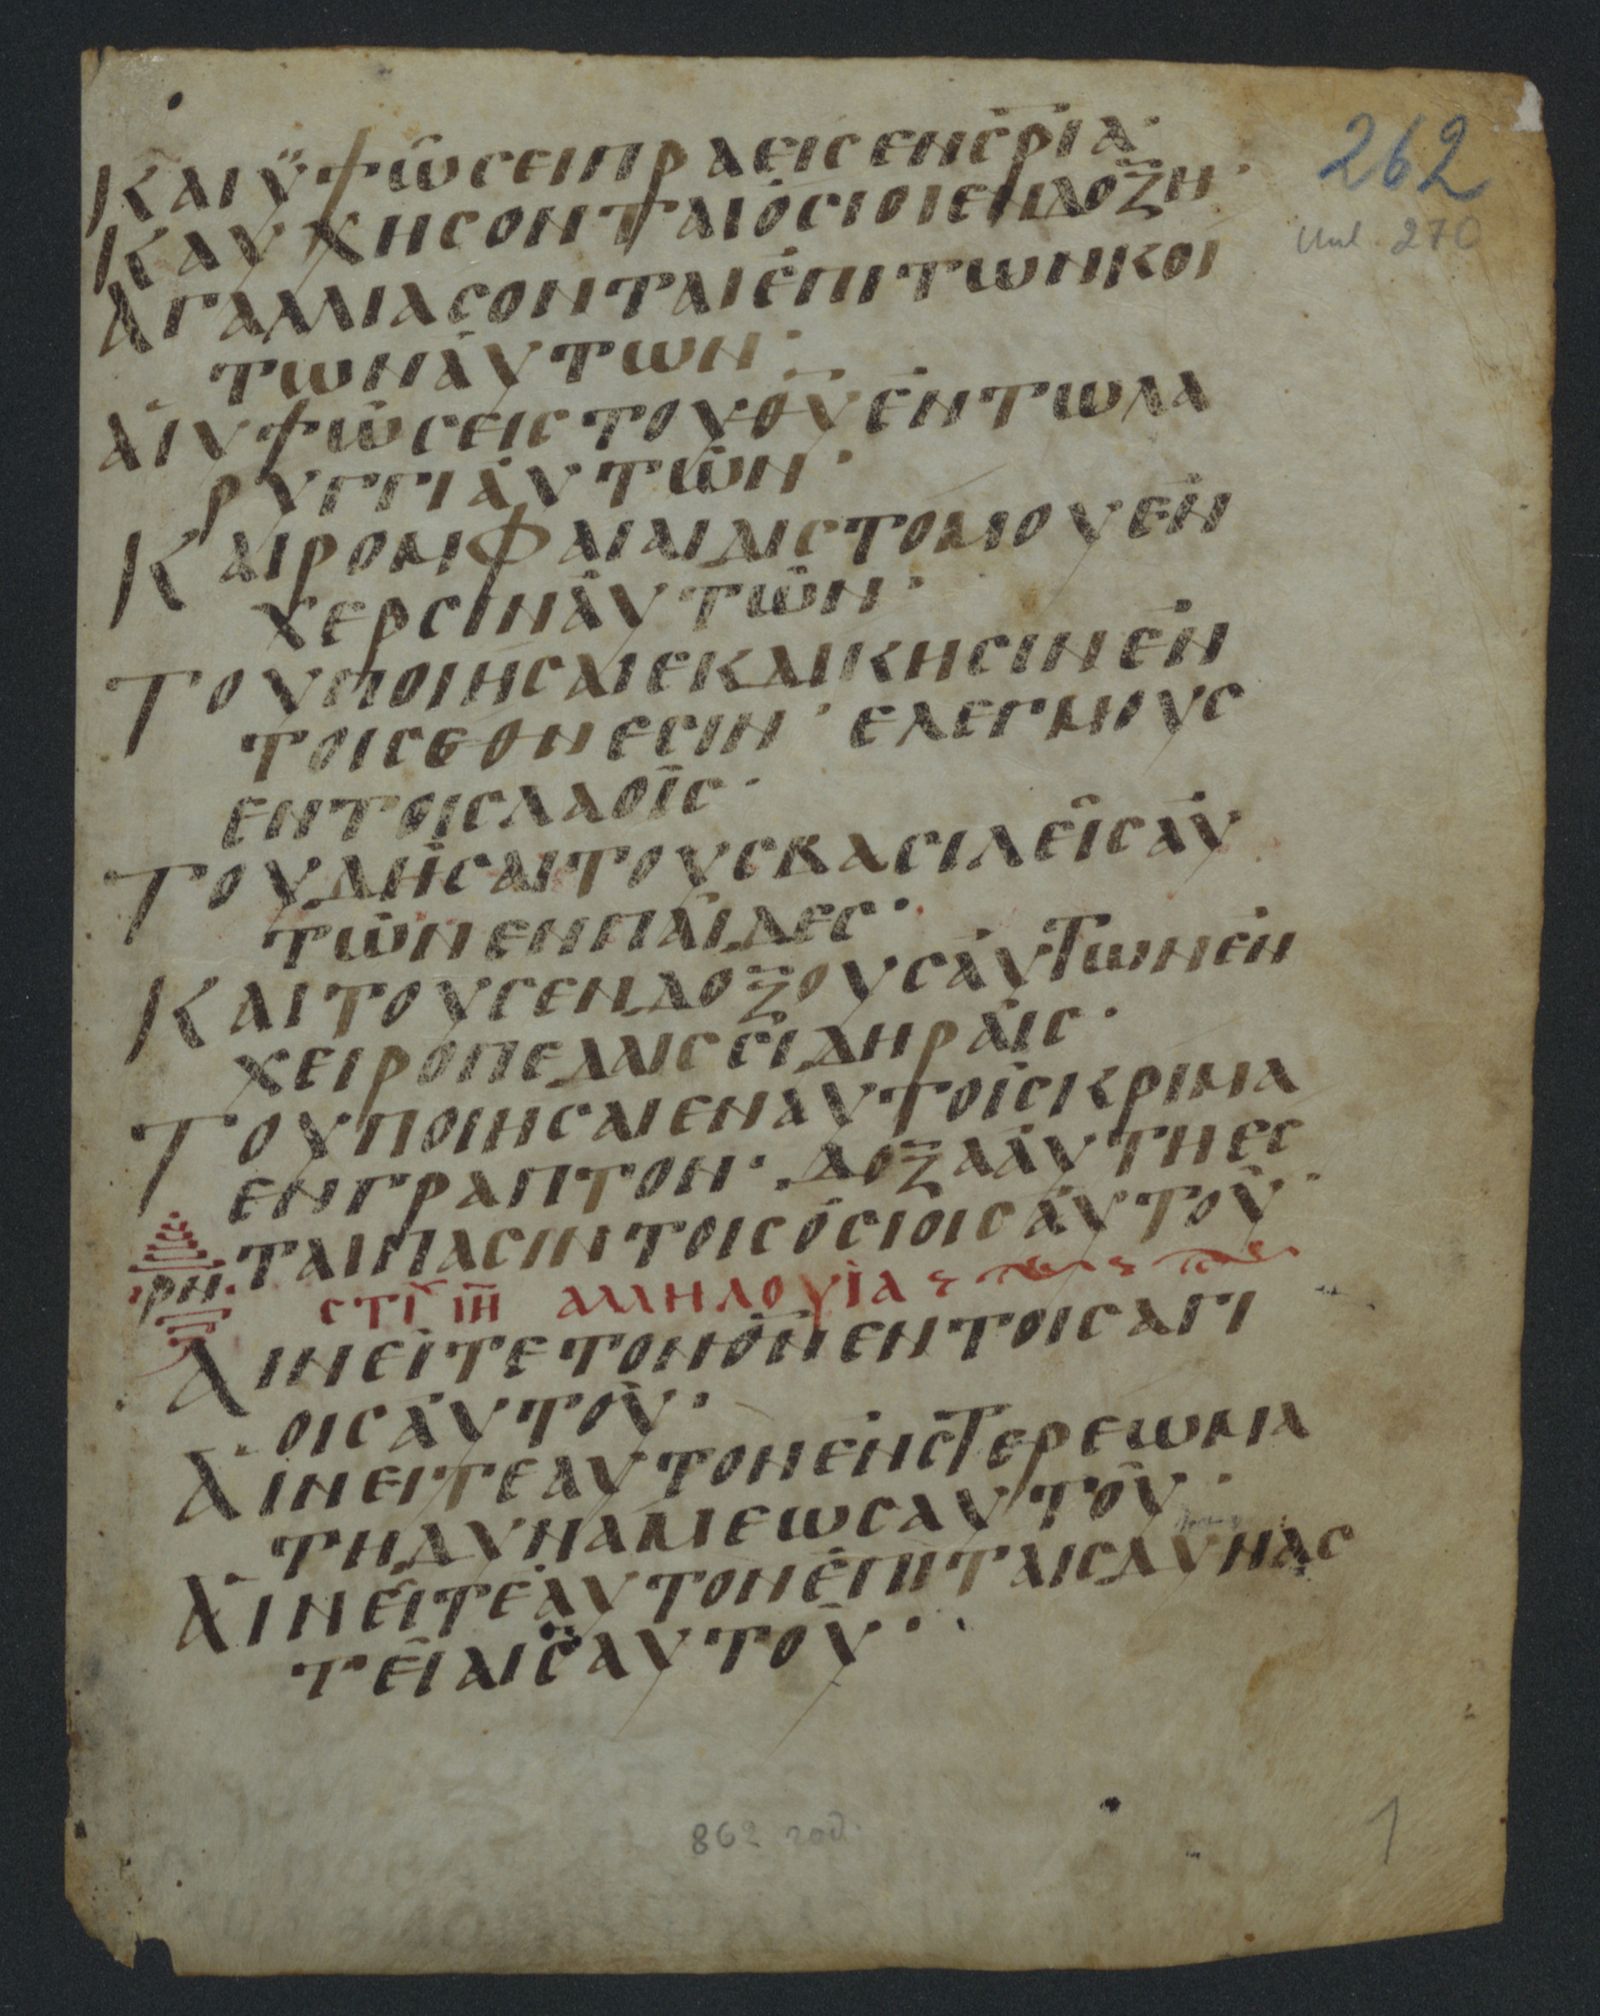 262
270
ΚΑΙΥΨΩΣΕΙΠΡΑΕΙΣΕΝΣΡΙΑ·
ΚΑΥΧΗΣΟΝΤΑΙΟΣΙΟΙΕΝΔΟΞΗ·
ΑΓΑΛΛΙΑΣΟΝΤΑΙΕΠΙΤΩΝΚΟΙ
ΤΩΝΑΥΤΩΝ·
ΑΙΥΨΩΣΕΙΣΤΟΥΘΥΕΝΤΩΛΑ
ΡΥΓΓΙΑΥΤΩΝ·
ΚΑΙΡΟΜΦΑΙΑΙΔΙΣΤΟΜΟΥΕΝ
ΧΕΡΣΙΝΑΥΤΩΝ·
ΤΟΥΠΟΙΗΣΑΙΕΚΔΙΚΗΣΙΝΕΝ
ΤΟΙΣΕΘΝΕΣΙΝ· ΕΛΕΓΜΟΥΣ
ΕΝΤΟΙΣΛΑΟΙΣ·
ΤΟΥΔΗΣΑΙΤΟΥΣΒΑΣΙΛΕΙΣΑΥ
ΤΩΝΕΝΠΑΙΔΕΣ·
ΚΑΙΤΟΥΣΕΝΔΟΞΟΥΣΑΥΤΩΝΕΝ
ΧΕΙΡΟΠΕΔΑΙΣΣΙΔΗΡΑΙΣ·
ΤΟΥΠΟΙΗΣΑΙΕΝΑΥΤΟΙΣΚΡΙΜΑ
ΕΝΓΡΑΠΤΟΝ· ΔΟΞΑΑΥΤΗΕΣ
ΤΑΙΠΑΣΙΝΤΟΙΣΟΣΙΟΙΣΑΥΤΟΥ·
ΡΝ ΣΤΙΧ ΙΗ ΑΛΛΗΛΟΥΙΑ
ΑΙΝΕΙΤΕΤΟΝΘΝΕΝΤΟΙΣΑΓΙ
ΟΙΣΑΥΤΟΥ·
ΑΙΝΕΙΤΕΑΥΤΟΝΕΝΣΤΕΡΕΩΜΑ
ΤΗΔΥΝΑΜΕΩΣΑΥΤΟΥ·
ΑΙΝΕΙΤΕΑΥΤΟΝΕΠΙΤΑΙΣΔΥΝΑΣ
ΤΕΙΑΙΣΑΥΤΟΥ·
862 год.
1